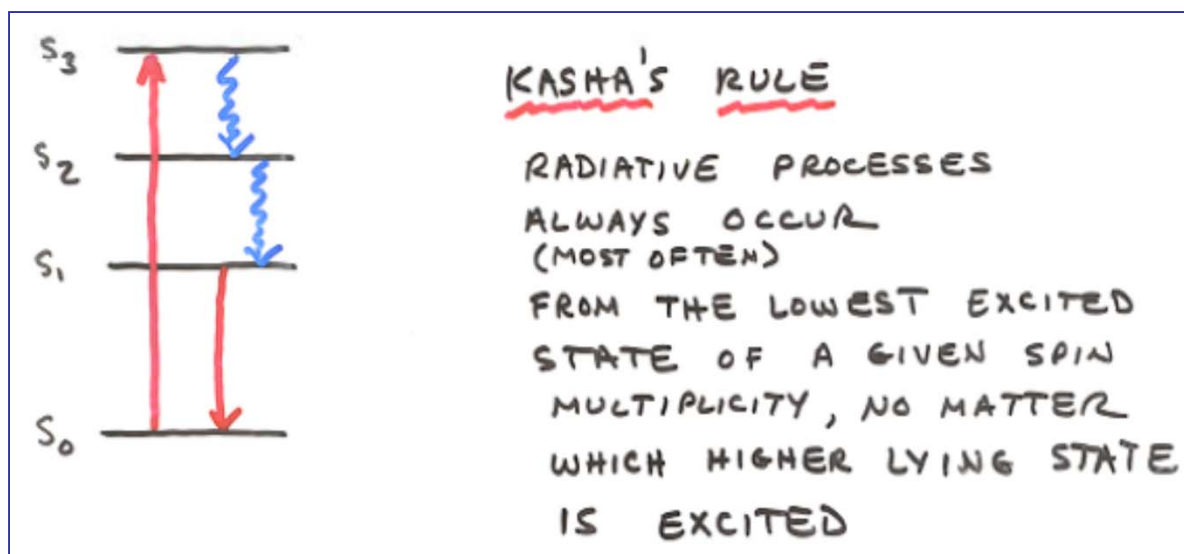 S₃
S₂
S₁
S₀
KASHA'S RULE
RADIATIVE PROCESSES
ALWAYS OCCUR
(MOST OFTEN)
FROM THE LOWEST EXCITED
STATE OF A GIVEN SPIN
MULTIPLICITY, NO MATTER
WHICH HIGHER LYING STATE
IS EXCITED